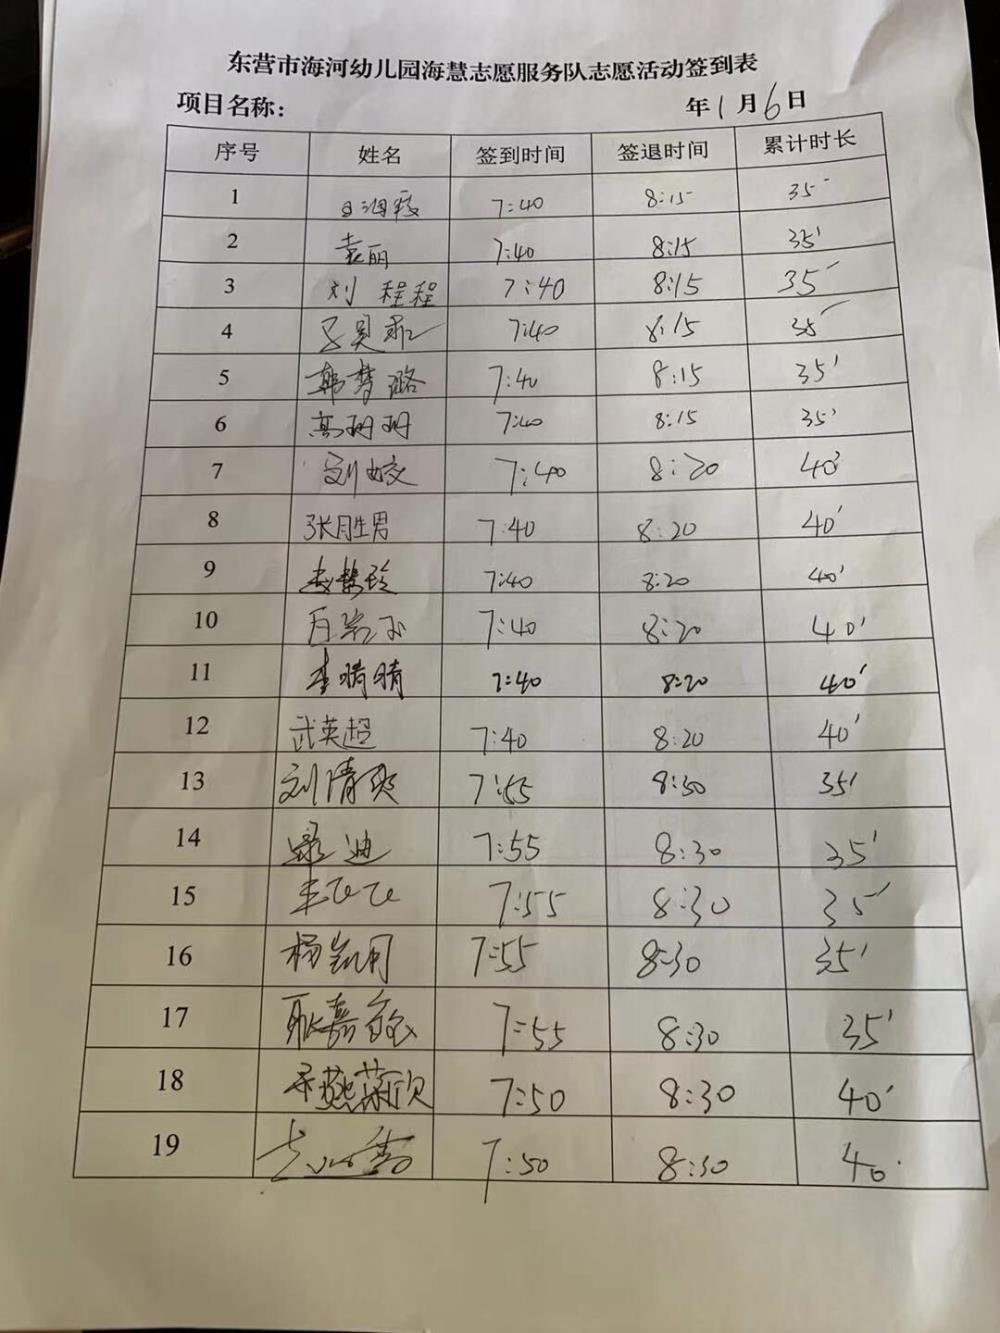 东营市海河幼儿园海慧志愿服务队志愿活动签到表
项目名称： 年1月6日
序号 姓名 签到时间 签退时间 累计时长
1 7:40 8:15 35
2 袁丽 7:40 8:15 35'
3 刘程程 7:40 8:15 35'
4 7:40 8:15 35'
5 韩梦璐 7:40 8:15 35'
6 高珊珊 7:40 8:15 35'
7 刘姣 7:40 8:20 40'
8 张胜男 7:40 8:20 40'
9 7:40 8:20 40'
10 7:40 8:20 40'
11 李晴晴 7:40 8:20 40'
12 武英超 7:40 8:20 40'
13 刘清爽 7:55 8:30 35'
14 迪 7:55 8:30 35'
15 7:55 8:30 35'
16 杨凯月 7:55 8:30 35'
17 耿嘉 7:55 8:30 35'
18 7:50 8:30 40'
19 7:50 8:30 40'